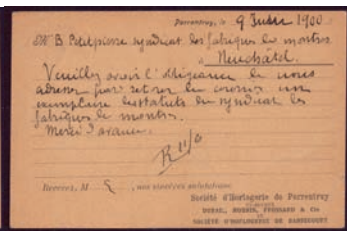 Porrentruy, le 9 Juin 1900
Mr B. Petitpierre syndicat des fabriques de montres
à Neuchâtel
Veuillez avoir l'obligeance de nous
adresser par retour du courrier un
exemplaire des statuts du syndicat des
fabriques de montres.
Merci d'avance.
R 11/6
Recevez, M , nos sincères salutations.
Société d'Horlogerie de Porrentruy
SOCIÉTÉ D'HORLOGERIE DE